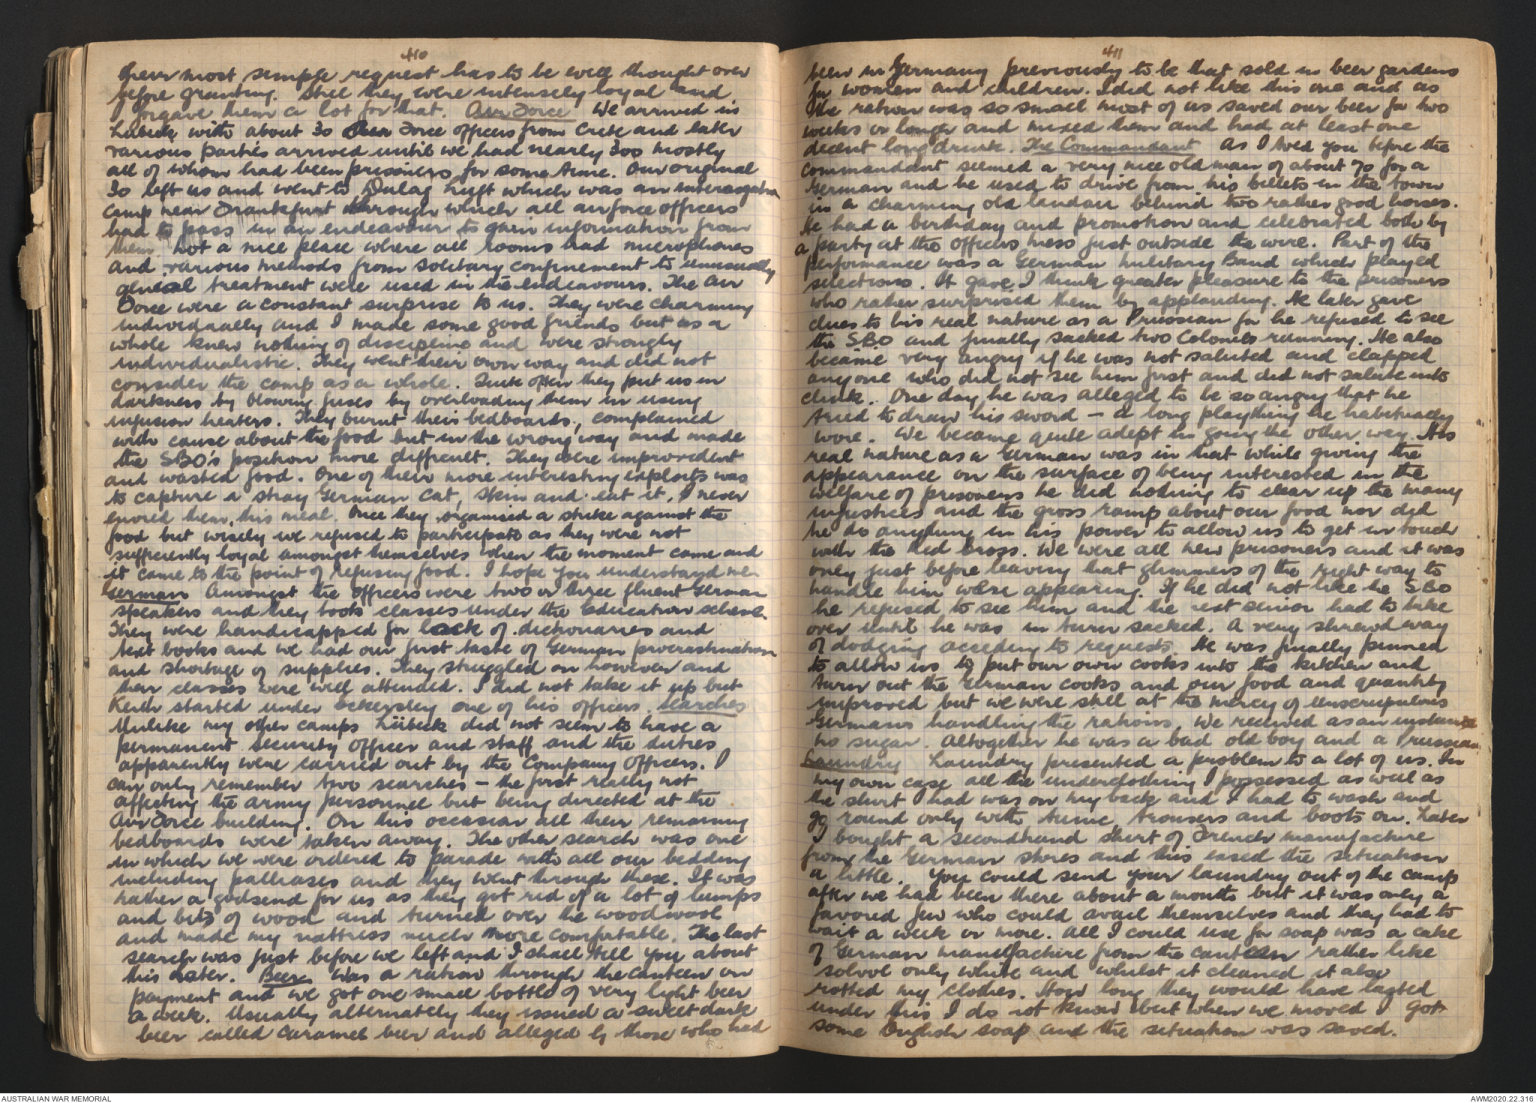 410
their most simple request has to be well thought over
before granting. Still they were intensely loyal and
I forgave them a lot for that. Air Force We arrived in
Lubeck with about 30 Air Force officers from Crete and later
various parties arrived until we had nearly 300 mostly
all of whom had been prisoners for some time. Our original
30 left us and went to Dulag Luft which was an interrogation
camp near Frankfurt through which all airforce officers
had to pass in an endeavour to gain information from
them. Not a nice place where all rooms had microphones
and various methods from solitary confinement to unusually
genial treatment were used in the endeavours. The Air
Force were a constant surprise to us. They were charming
individually and I made some good friends but as a
whole knew nothing of discipline and were strongly
individualistic. They went their own way and did not
consider the camp as a whole. Quite often they put us in
darkness by blowing fuses by overloading them in using
infusion heaters. They burnt their bedboards, complained
with cause about the food but in the wrong way and made
the SBO's position more difficult. They were improvident
and wasted food. One of their more interesting exploits was
to capture a stray German cat, skin and eat it. I never
envied them this meal. Once they organised a strike against the
food but wisely we refused to participate as they were not
sufficiently loyal amongst themselves when the moment came and
it came to the point of refusing food. I hope you understand me.
German Amongst the officers were two or three fluent German
speakers and they took classes under the Education scheme.
They were handicapped for lack of dictionaries and
text books and we had our first taste of German procrastination
and shortage of supplies. They struggled on however and
their classes were well attended. I did not take it up but
Keith started under Eckersley one of his officers. Searches
Unlike my other camps Lübeck did not seem to have a
permanent security officer and staff and the duties
apparently were carried out by the Company Officers. I
can only remember two searches - the first really not
affecting the army personnel but being directed at the
Air Force building. On this occasion all their remaining
bedboards were taken away. The other search was one
in which we were ordered to parade with all our bedding
including palliases and they went through these. It was
rather a godsend for us as they got rid of a lot of lumps
and bits of wood and turned over the woodwool
and made my mattress much more comfortable. The last
search was just before we left and I shall tell you about
this later. Beer Was a ration through the canteen on
payment and we got one small bottle of very light beer
a week. Usually alternately they issued a sweet dark
beer called Caramel beer and alleged by those who had
411
been in Germany previously to be that sold in beer gardens
for women and children. I did not like this one and as
the ration was so small most of us saved our beer for two
weeks or longer and mixed them and had at least one
decent long drink. The Commandant As I told you before the
Commandant seemed a very nice old man of about 70 for a
German and he used to drive from his billets in the town
in a charming old landau behind two rather good horses.
He had a birthday and promotion and celebrated both by
a party at the officers mess just outside the wire. Part of the
performance was a German Military Band which played
selections. It gave, I think greater pleasure to the prisoners
who rather surprised them by applauding. He later gave
clues to his real nature as a Prussian for he refused to see
the SBO and finally sacked two Colonels running. He also
became very angry if he was not saluted and clapped
anyone who did not see him first and did not salute into
clink. One day he was alleged to be so angry that he
tried to draw his sword - a long plaything he habitually
wore. We became quite adept in going the other way. His
real nature as a German was in that while giving the
appearance on the surface of being interested in the
welfare of prisoners he did nothing to clear up the many
injustices and the gross ramp about our food nor did
he do anything in his power to allow us to get in touch
with the Red Cross. We were all new prisoners and it was
only just before leaving that glimmers of the right way to
handle him were appearing. If he did not like the SBO
he refused to see him and the next senior had to take
over until he was in turn sacked. A very shrewd way
of dodging acceding to requests. He was finally pinned
to allow us to put our own cooks into the kitchen and
turn out the German cooks and our food and quantity
improved but we were still at the mercy of unscrupulous
Germans handling the rations. We received as an instance
no sugar. Altogether he was a bad old boy and a Prussian
Laundry Laundry presented a problem to a lot of us. In
my own case all the underclothing I possessed as well as
the shirt I had was on my back and I had to wash and
go round only with tunic, trousers and boots on. Later
I bought a secondhand shirt of French manufacture
from the German stores and this eased the situation
a little. You could send your laundry out of the camp
after we had been there about a month but it was only a
favored few who could avail themselves and they had to
wait a week or more. All I could use for soap was a cake
of German manufacture from the canteen rather like
solvol only white and whilst it cleaned it also
rotted my clothes. How long they would have lasted
under this I do not know but when we moved I got
some English soap and the situation was saved.
AUSTRALIAN WAR MEMORIAL
AWM2020.22.316